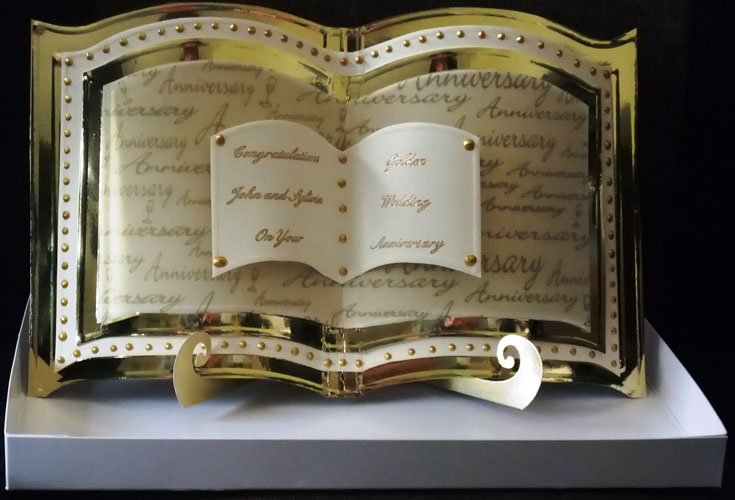 Congratulations
John and Sylvia
On Your
Golden
Wedding
Anniversary
Anniversary
Anniversary
Anniversary
Anniversary
Anniversary
Anniversary
Anniversary
Anniversary
Anniversary
Anniversary
Anniversary
Anniversary